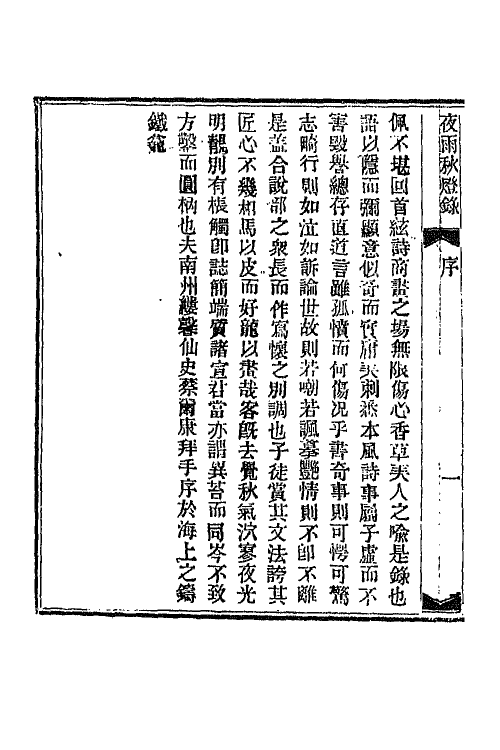 夜雨秋燈錄
序
一
佩不堪回首絃詩商畫之場無限傷心香草美人之喩是錄也
語以隱而彌顯意似奇而實庸美刺悉本風詩事屬子虛而不
害毀譽總存直道言雖孤憤而何傷况乎書奇事則可愕可驚
志畸行則如泣如訴論世故則若嘲若諷摹豔情則不卽不離
是蓋合說部之衆長而作寫懷之別調也子徒賞其文法誇其
匠心不幾相馬以皮而好龍以畫哉客旣去覺秋氣泬寥夜光
明靚別有棖觸卽誌簡端質諸宣君當亦謂異苔而同岑不致
方鑿而圓枘也夫南州縷馨仙史蔡爾康拜手序於海上之鑄
鐵龕